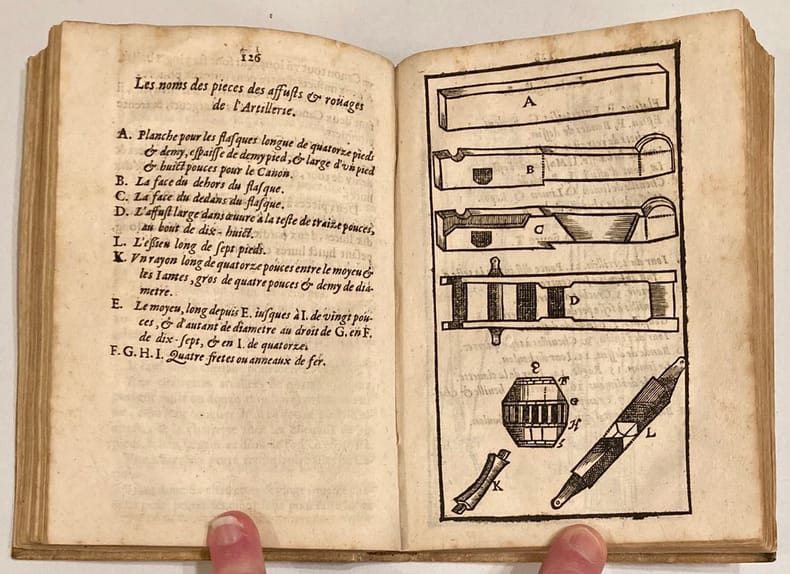 126
Les noms des pieces des affusts & roüages
de l'Artillerie.
A. Planche pour les flasques longue de quatorze pieds
& demy, espaisse de demy pied, & large d'vn pied
& huict pouces pour le Canon.
B. La face du dehors du flasque.
C. La face du dedans du flasque.
D. L'affust large dans œuure à la teste de traize pouces,
au bout de dix-huict.
L. L'essieu long de sept pieds.
K. Vn rayon long de quatorze pouces entre le moyeu &
les Iantes, gros de quatre pouces & demy de dia-
metre.
E. Le moyeu, long depuis E. iusques à I. de vingt pou-
ces, & d'autant de diametre au droit de G. en F.
de dix-sept, & en I. de quatorze.
F. G. H. I. Quatre fretes ou anneaux de fer.
A
B
C
D
E
F
G
H
I
K
L